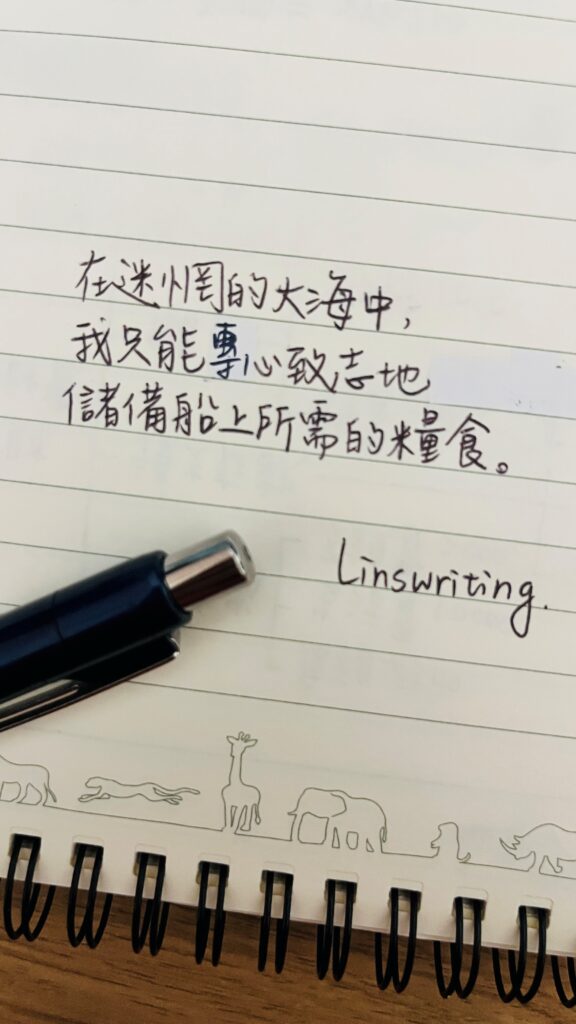 在迷惘的大海中,
我只能專心致志地
儲備船上所需的糧食。
Linswriting.